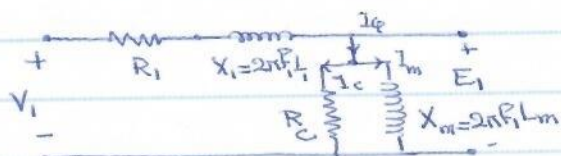 Iφ
+ R₁ X₁=2πf₁L₁ Ic Im +
V₁ Rc E₁
Xm=2πf₁Lm
- -